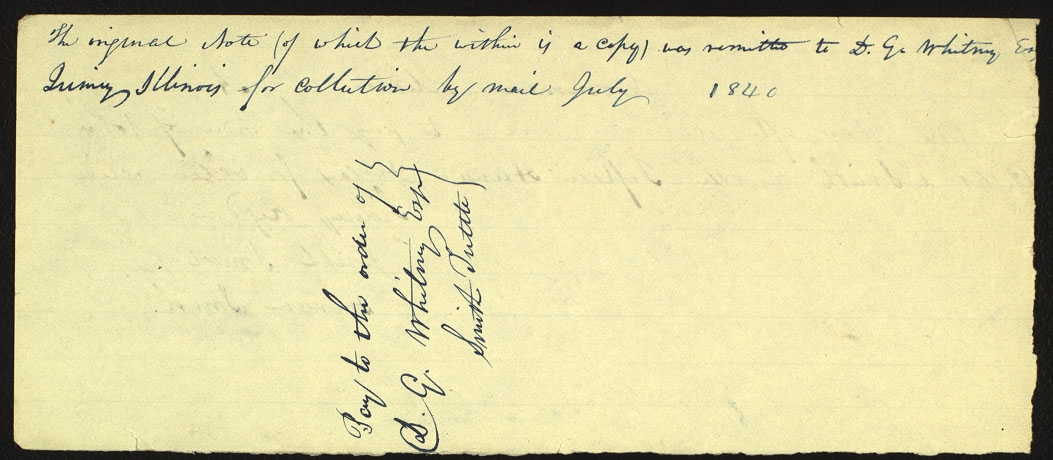 The original Note (of which the within is a copy) was remitted to D. G. Whitney Esq
Quincy Illinois for collection by mail July 1840
Pay to the order of
D. G. Whitney Esqr
Smith Tuttle